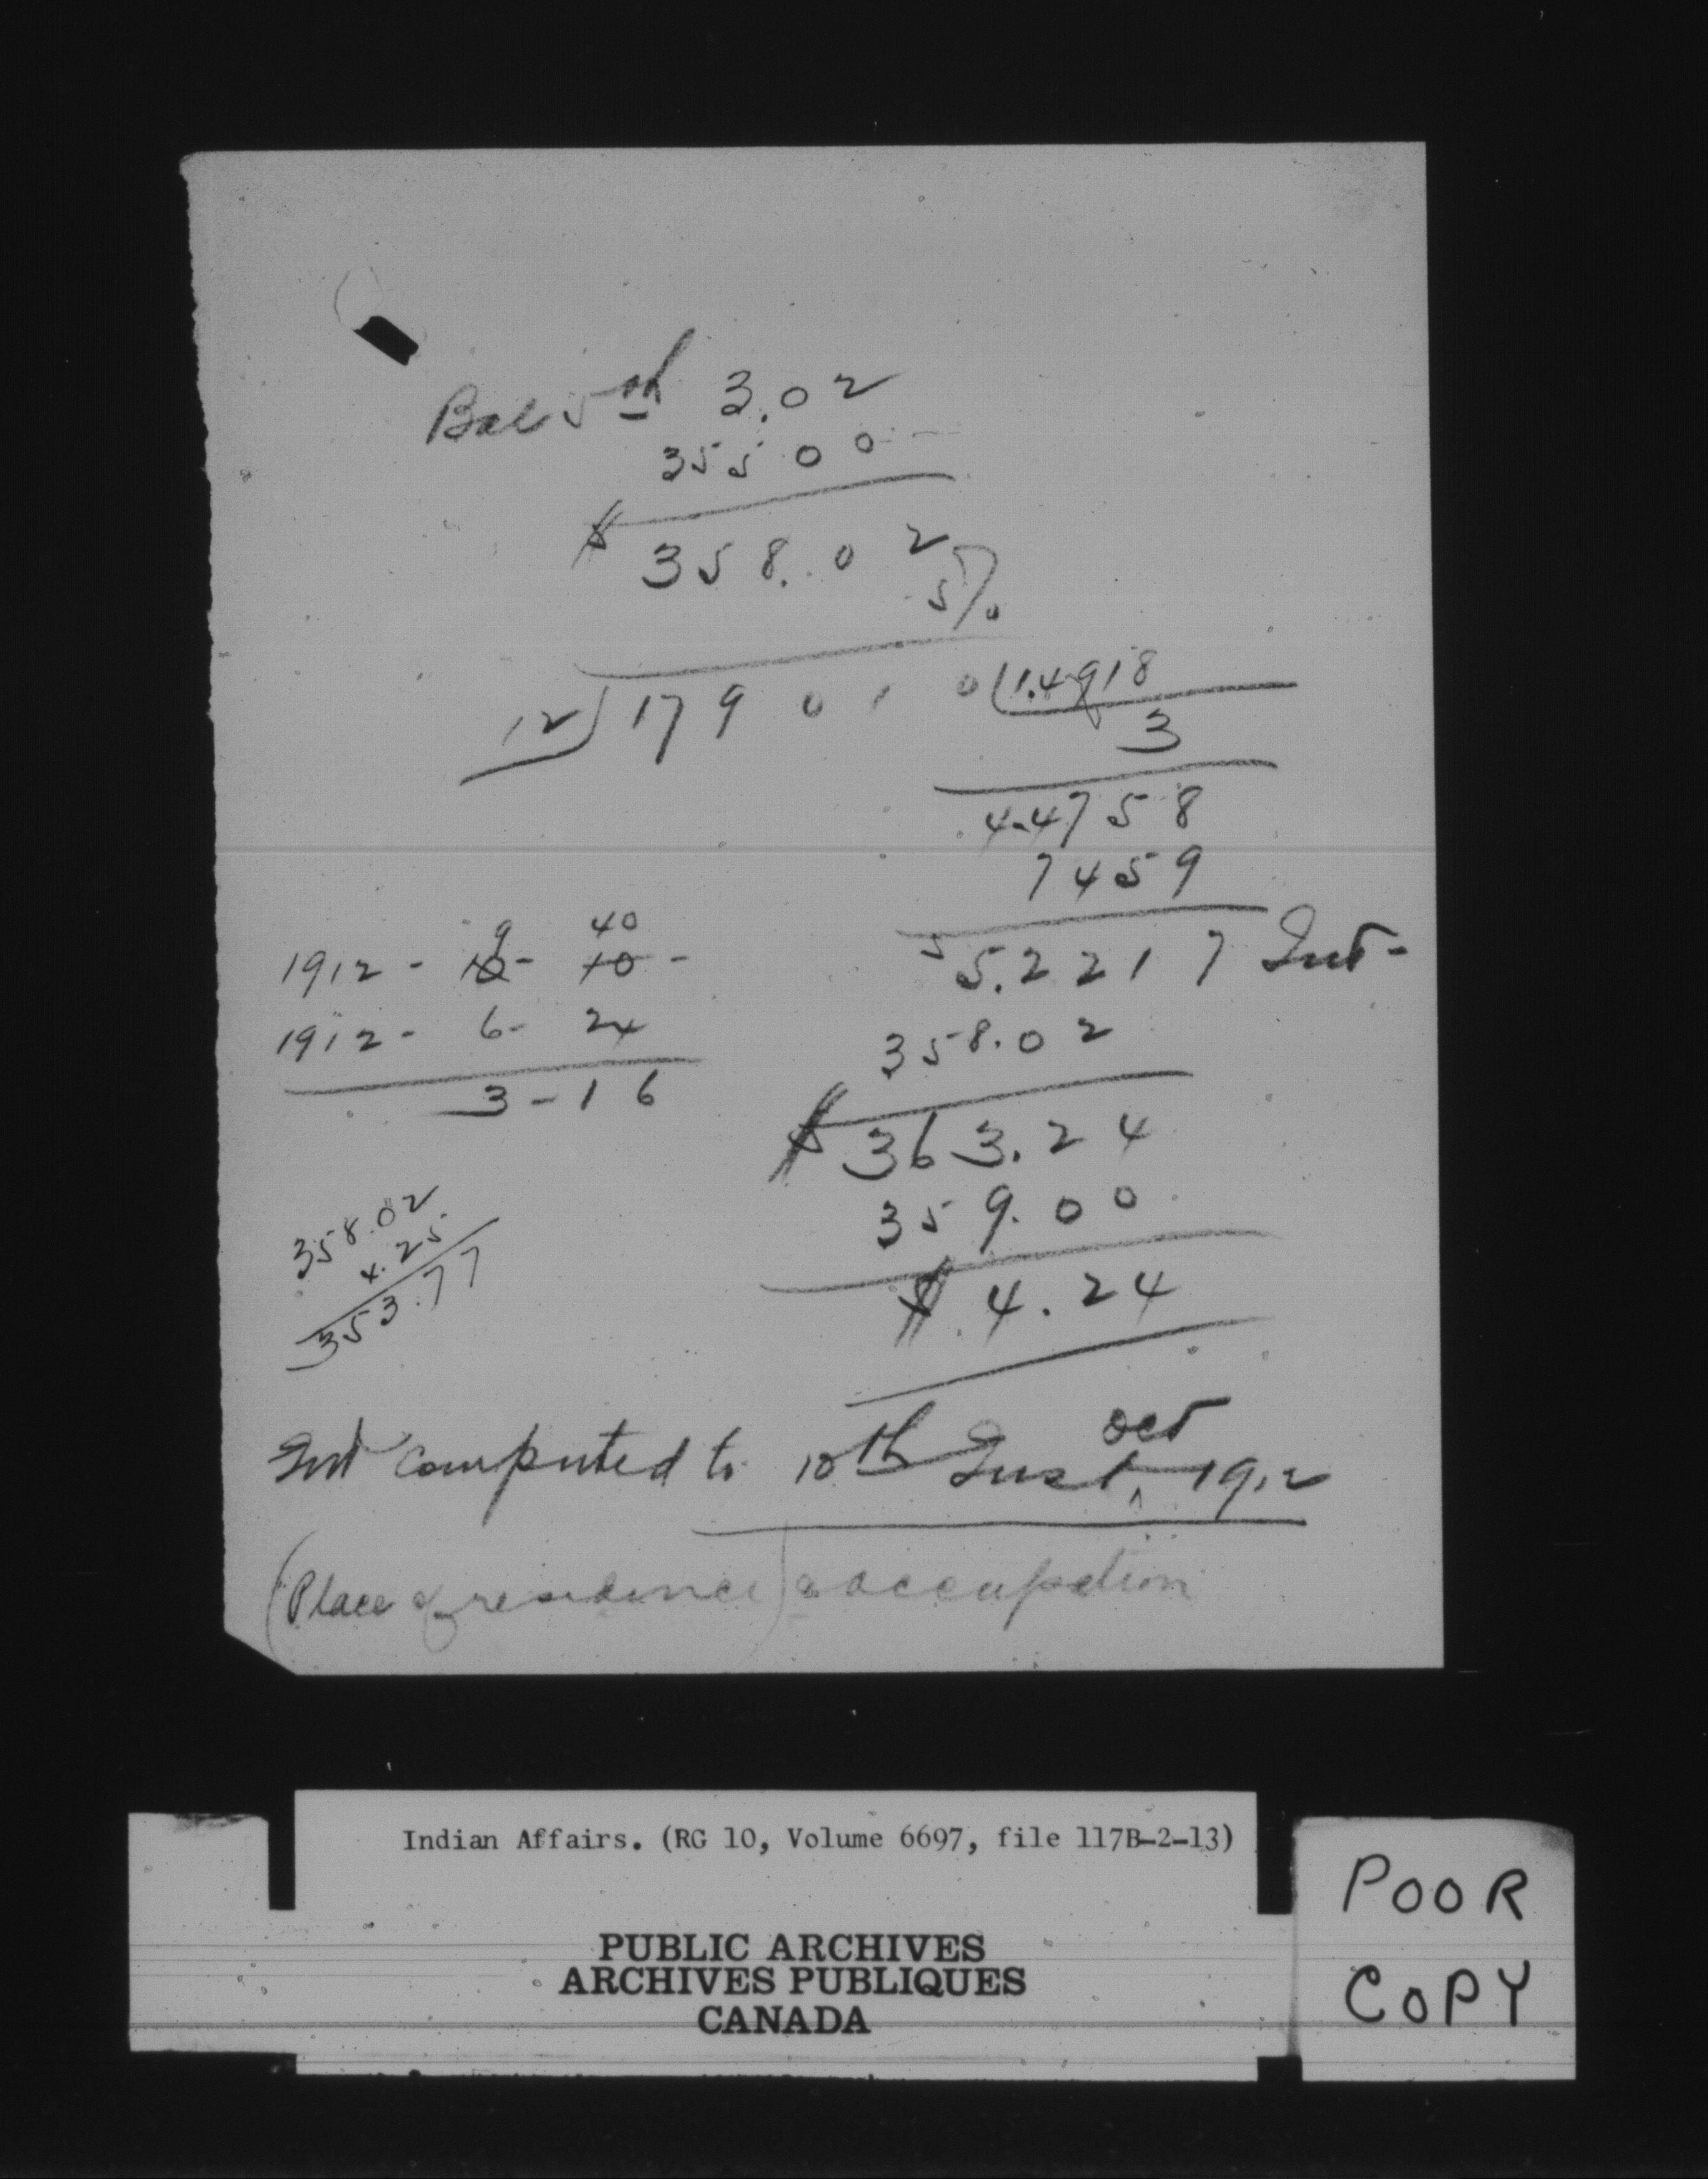 Bal 5th 3.02
355 00
$ 358.02
5%
12) 17 9 0 1 0 (1.4918
3
4.4758
7459
5 5.2217 Int-
358.02
$ 363.24
359.00
$ 4.24
9 40
1912 - 10 - 10 -
1912 - 6 - 24
3 - 16
358.02
4.25
353.77
Int computed to 10th Inst Oct 1912
(Place of residence) & occupation
Indian Affairs. (RG 10, Volume 6697, file 117B-2-13)
PUBLIC ARCHIVES
ARCHIVES PUBLIQUES
CANADA
POOR
COPY